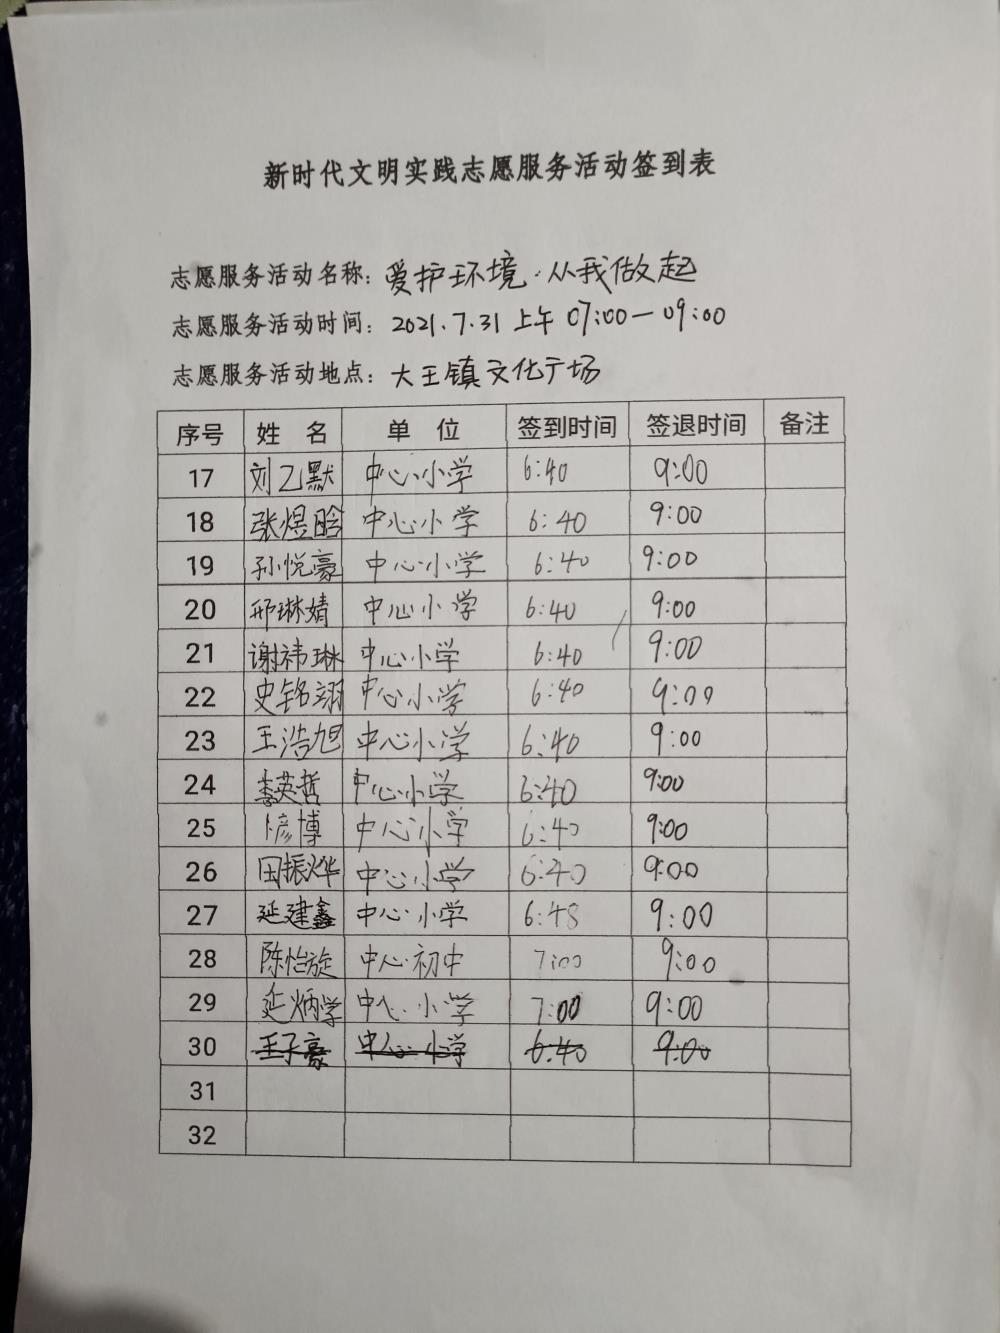 新时代文明实践志愿服务活动签到表
志愿服务活动名称：爱护环境·从我做起
志愿服务活动时间：2021.7.31 上午 07:00—09:00
志愿服务活动地点：大王镇文化广场
序号 姓 名 单 位 签到时间 签退时间 备注
17 刘乙默 中心小学 6:40 9:00
18 张煜晗 中心小学 6:40 9:00
19 孙悦豪 中心小学 6:40 9:00
20 邢琳婧 中心小学 6:40 9:00
21 谢祎琳 中心小学 6:40 9:00
22 史铭翊 中心小学 6:40 9:00
23 王浩旭 中心小学 6:40 9:00
24 李英哲 中心小学 6:40 9:00
25 中心小学 6:40 9:00
26 田振烨 中心小学 6:40 9:00
27 延建鑫 中心小学 6:48 9:00
28 陈怡旋 中心初中 7:00 9:00
29 延炳学 中心小学 7:00 9:00
30 王子豪 中心小学 6:40 9:00
31
32